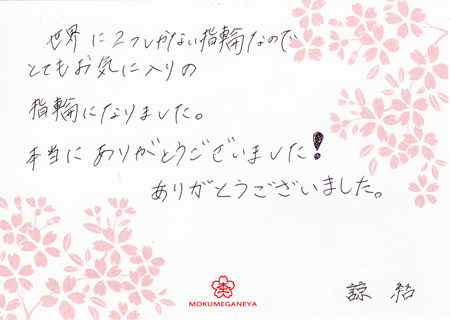 世界に2つしかない指輪なので
とてもお気に入りの
指輪になりました。
本当にありがとうございました!
ありがとうございました。
諒 結
MOKUMEGANEYA